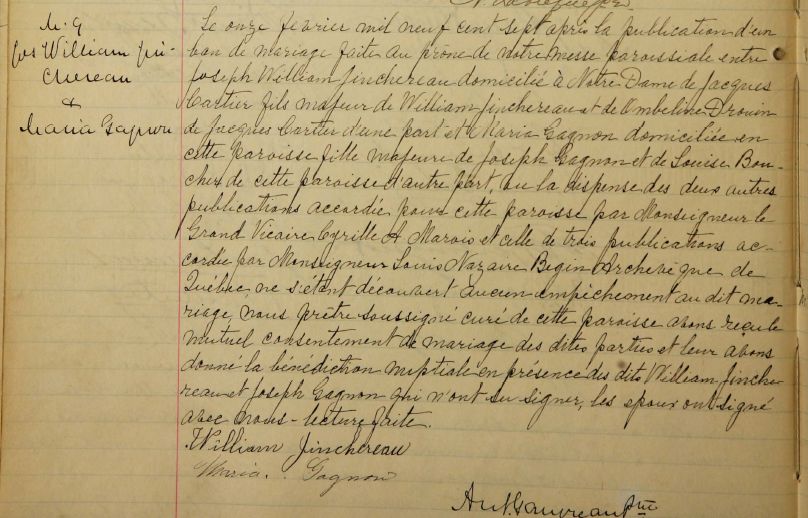 M. 9
Jos William Jin-
chereau
&
Maria Gagnon
Le onze février mil neuf cent sept après la publication d'un
ban de mariage faite au prône de notre messe paroissiale entre
Joseph William Jinchereau domicilié à Notre-Dame de Jacques
Cartier fils majeur de William Jinchereau et de Ombeline Drouin
de Jacques Cartier d'une part et Maria Gagnon domiciliés en
cette paroisse fille majeure de Joseph Gagnon et de Louise Bou-
cher de cette paroisse d'autre part, vu la dispense des deux autres
publications accordée pour cette paroisse par Monseigneur le
Grand Vicaire Cyrille A Marois et celle de trois publications ac-
cordée par Monseigneur Louis Nazaire Begin Archevêque de
Québec, ne s'étant découvert aucun empêchement au dit ma-
riage, nous prêtre soussigné curé de cette paroisse avons reçu le
mutuel consentement de mariage des dites parties et leur avons
donné la bénédiction nuptiale en présence des dits William Jinche-
reau et Joseph Gagnon qui n'ont su signer, les époux ont signé
avec nous - lecture faite.
William Jinchereau
Maria Gagnon
Gauvreau Ptre